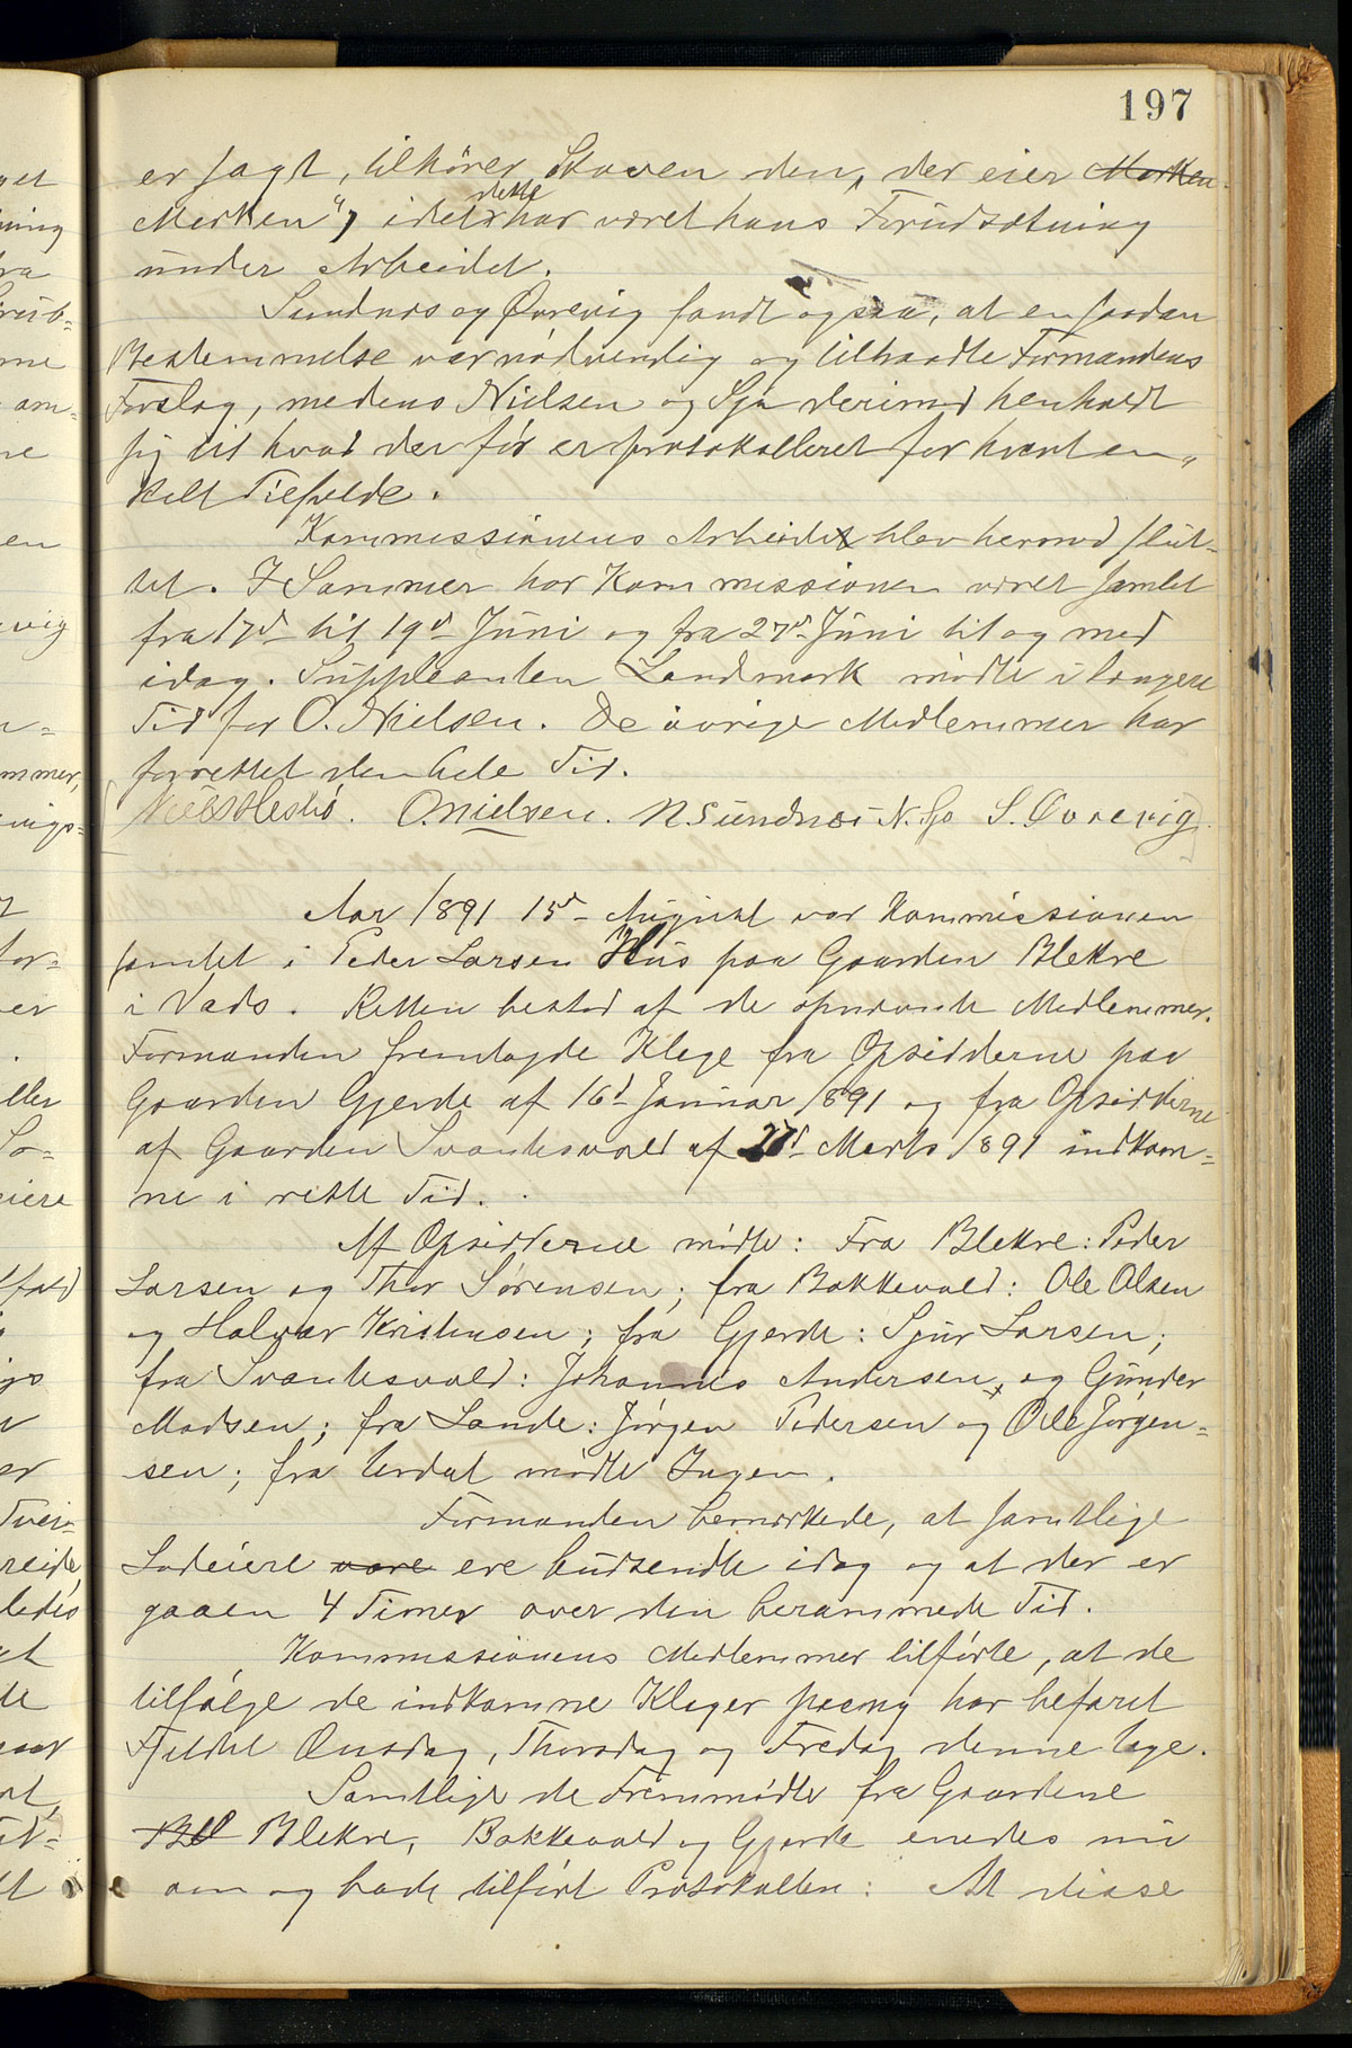 197
er sagt, tilhører Skoven den, der eier Marken
Marken", idet dette har været hans Forudsætning
under Arbeidet.
Sundnæs og Øvrevig fandt ogsaa, at en saadan
Bestemmelse var nødvendig og tiltraadte Formandens
Forslag, medens Nielsen og Sjo derimod henholdt
sig til hvad der før er protokolleret for hvert en-
kelt Tilfælde.
Kommissionens Arbeide blev hermed slut-
tet. I Sommer har Kommissionen været samlet
fra 17d til 19d Juni og fra 27d Juni til og med
idag. Suppleanten Landmark mødte i længere
Tid for O. Nielsen. De øvrige Medlemmer har
forrettet den hele Tid.
O. Nielsen. N. Sundnæs N. Sjo S. Øvrevig
Aar 1891 15d August var Kommissionen
samlet i Peder Larsen Hus paa Gaarden Blekre
i Vads. Retten bestod af de opnævnte Medlemmer.
Formanden fremlagde Klage fra Opsidderne paa
Gaarden Gjerde af 16d Januar 1891 og fra Opsidderne
af Gaarden Svantesvold af 27d Marts 1891 indkom-
ne i rette Tid.
Af Opsidderne mødte: Fra Blekre: Peder
Larsen og Thor Sørensen; fra Bakkevold: Ole Olsen
og Halvor Kristensen; fra Gjerde: Sjur Larsen;
fra Svantesvold: Johannes Andersen, og Gunder
Madsen; fra Lande: Jørgen Pedersen og Ole Jørgen-
sen; fra mødte Ingen.
Formanden bemærkede, at samtlige
Lodeiere vare ere budsendte idag og at der er
gaaen 4 Timer over den berammede Tid.
Kommissionens Medlemmer tilførte, at de
tilfølge de indkomne Klager paany har befaret
Fjeldet Onsdag, Thorsdag og Fredag denne Uge.
Samtlige de Fremmødte fra Gaardene
Bl Blekre, Bakkevold og Gjerde enedes nu
om og bade tilført Protokollen: At disse